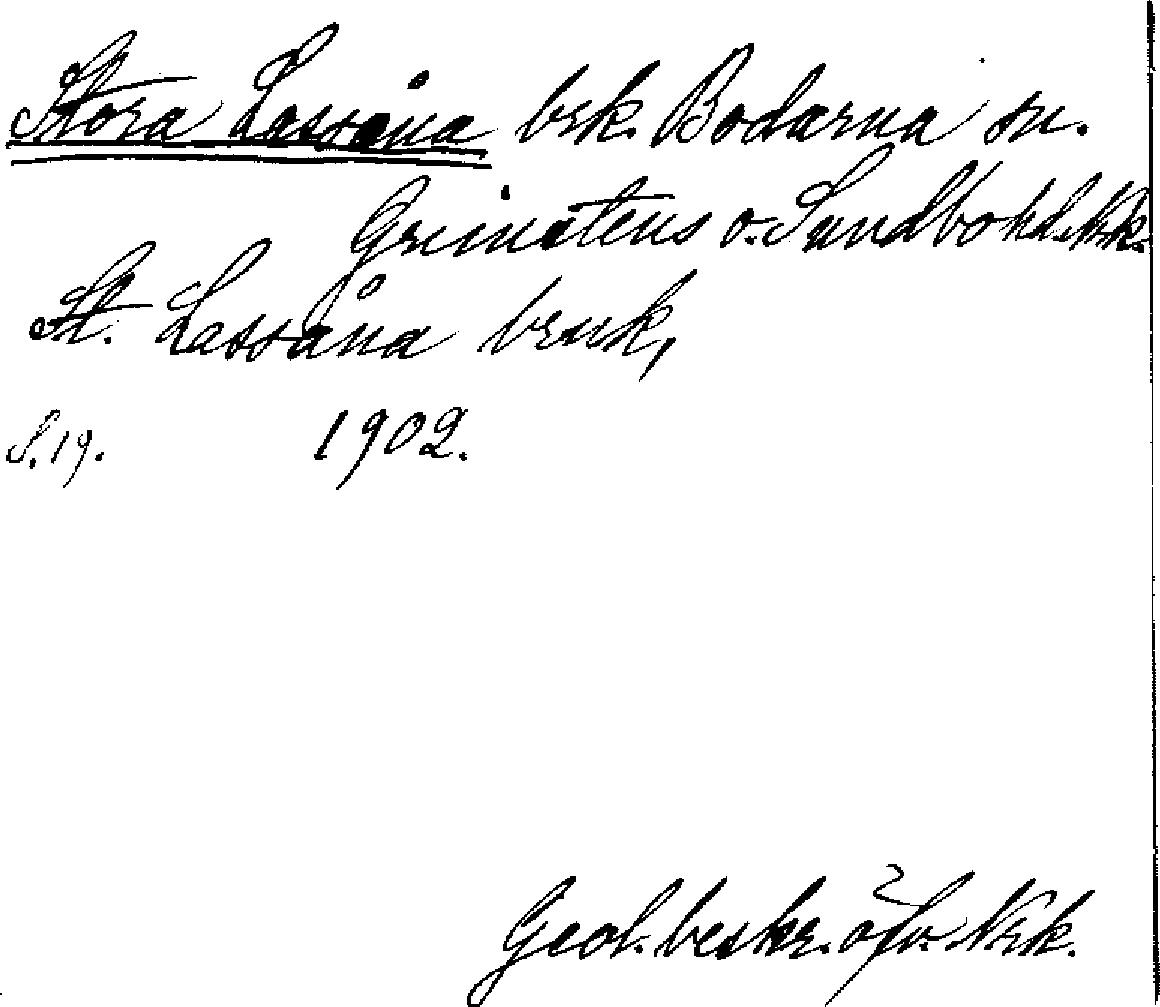 Stora Lassåna brk. Bodarna sn.
Grimstens o. Sundbo hd. Nrk.
St. Lassåna bruk,
S. 19. 1902.
Geol. beskr. öfv. Nrk.